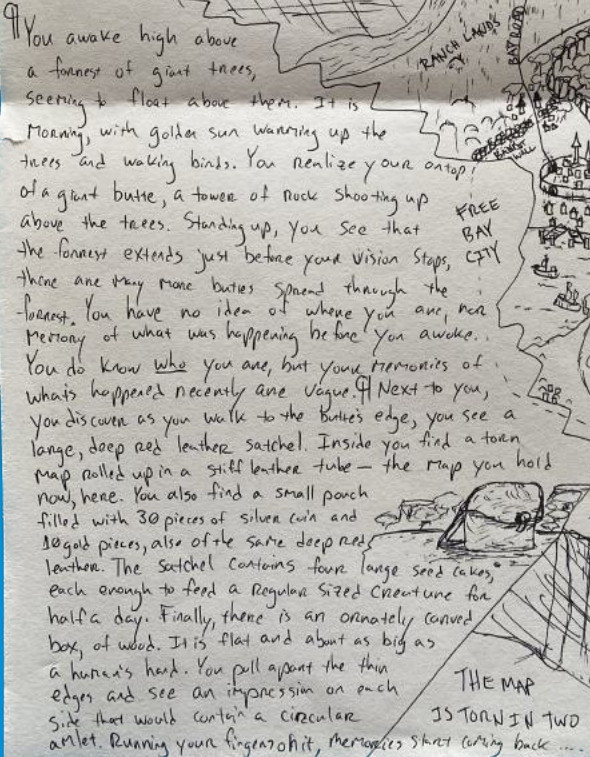 ¶You awake high above
a forrest of giant trees,
seeming to float above them. It is
Morning, with golden sun warming up the
trees and waking birds. You realize your ontop
of a giant butte, a tower of rock shooting up
above the trees. Standing up, you see that
the forrest extends just before your vision stops,
there are many more buttes spread through the
forrest. You have no idea of where you are, nor
memory of what was happening before you awoke.
You do know who you are, but your memories of
whats happened recently are vague. ¶ Next to you,
you discover as you walk to the butte's edge, you see a
large, deep red leather satchel. Inside you find a torn
map rolled up in a stiff leather tube — the map you hold
now, here. You also find a small pouch
filled with 30 pieces of silver coin and
10 gold pieces, also of the same deep red
leather. The satchel contains four large seed cakes,
each enough to feed a regular sized creature for
half a day. Finally, there is an ornately carved
box, of wood. It is flat and about as big as
a human's hand. You pull apart the thin
edges and see an impression on each
side that would contain a circular
amlet. Running your fingers ohit, memories start coming back ....
RANCH LANDS
BAY ROAD
FREE
BAY
CITY
THE MAP
IS TORN IN TWO